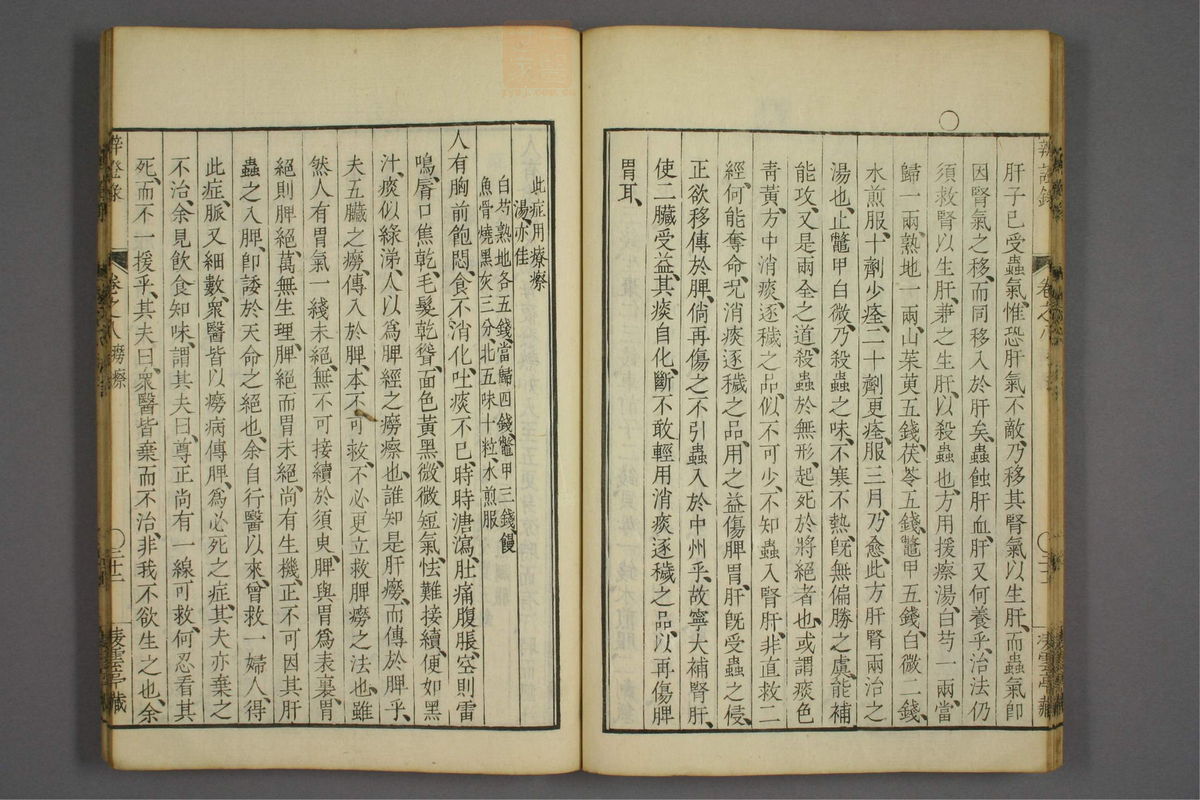 肝子已受蟲氣、惟恐肝氣不敵、乃移其腎氣以生肝、而蟲氣卽
因腎氣之移、而同移入於肝矣、蟲蝕肝血、肝又何養乎、治法仍
須救腎以生肝、兼之生肝、以殺蟲也、方用援瘵湯、白芍一兩、當
歸一兩、熟地一兩、山茱萸五錢、茯苓五錢、鼈甲五錢、白薇二錢、
水煎服、十劑少痊、二十劑更痊、服三月、乃愈、此方肝腎兩治之
湯也、止鼈甲白薇、乃殺蟲之味、不寒不熱、旣無偏勝之虞、能補
能攻、又是兩全之道、殺蟲於無形、起死於將絕者也、或謂痰色
靑黃、方中消痰逐穢之品、似不可少、不知蟲入腎肝、非直救二
經、何能奪命、况消痰逐穢之品、用之益傷脾胃、肝旣受蟲之侵、
正欲移傳於脾、倘再傷之、不引蟲入於中州乎、故寧大補腎肝、
使二臟受益、其痰自化、斷不敢輕用消痰逐穢之品、以再傷脾
胃耳、
此症用療瘵
湯亦佳
白芍熟地各五錢、當歸四錢、鼈甲三錢、鰻
魚骨燒黑灰三分、北五味十粒、水煎服
人有胸前飽悶、食不消化、吐痰不已、時時溏瀉、肚痛腹脹、空則雷
鳴、脣口焦乾、毛髮乾聳、面色黃黑、微微短氣、怯難接續、便如黑
汁、痰似綠涕、人以爲脾經之癆瘵也、誰知是肝癆、而傳於脾乎、
夫五臟之癆、傳入於脾、本不可救、不必更立救脾癆之法也、雖
然人有胃氣一綫未絕、無不可接續於須臾、脾與胃爲表裏、胃
絕則脾絕、萬無生理、脾絕而胃未絕、尚有生機、正不可因其肝
蟲之入脾、卽諉於天命之絕也、余自行醫以來、曾救一婦人、得
此症、脈又細數、衆醫皆以癆病傳脾、爲必死之症、其夫亦棄之
不治、余見飲食知味、謂其夫曰、尊正尚有一線可救、何忍看其
死、而不一援乎、其夫曰、衆醫皆棄而不治、非我不欲生之也、余
辨證錄
卷之八癆瘵
三十二
凌雲亭藏